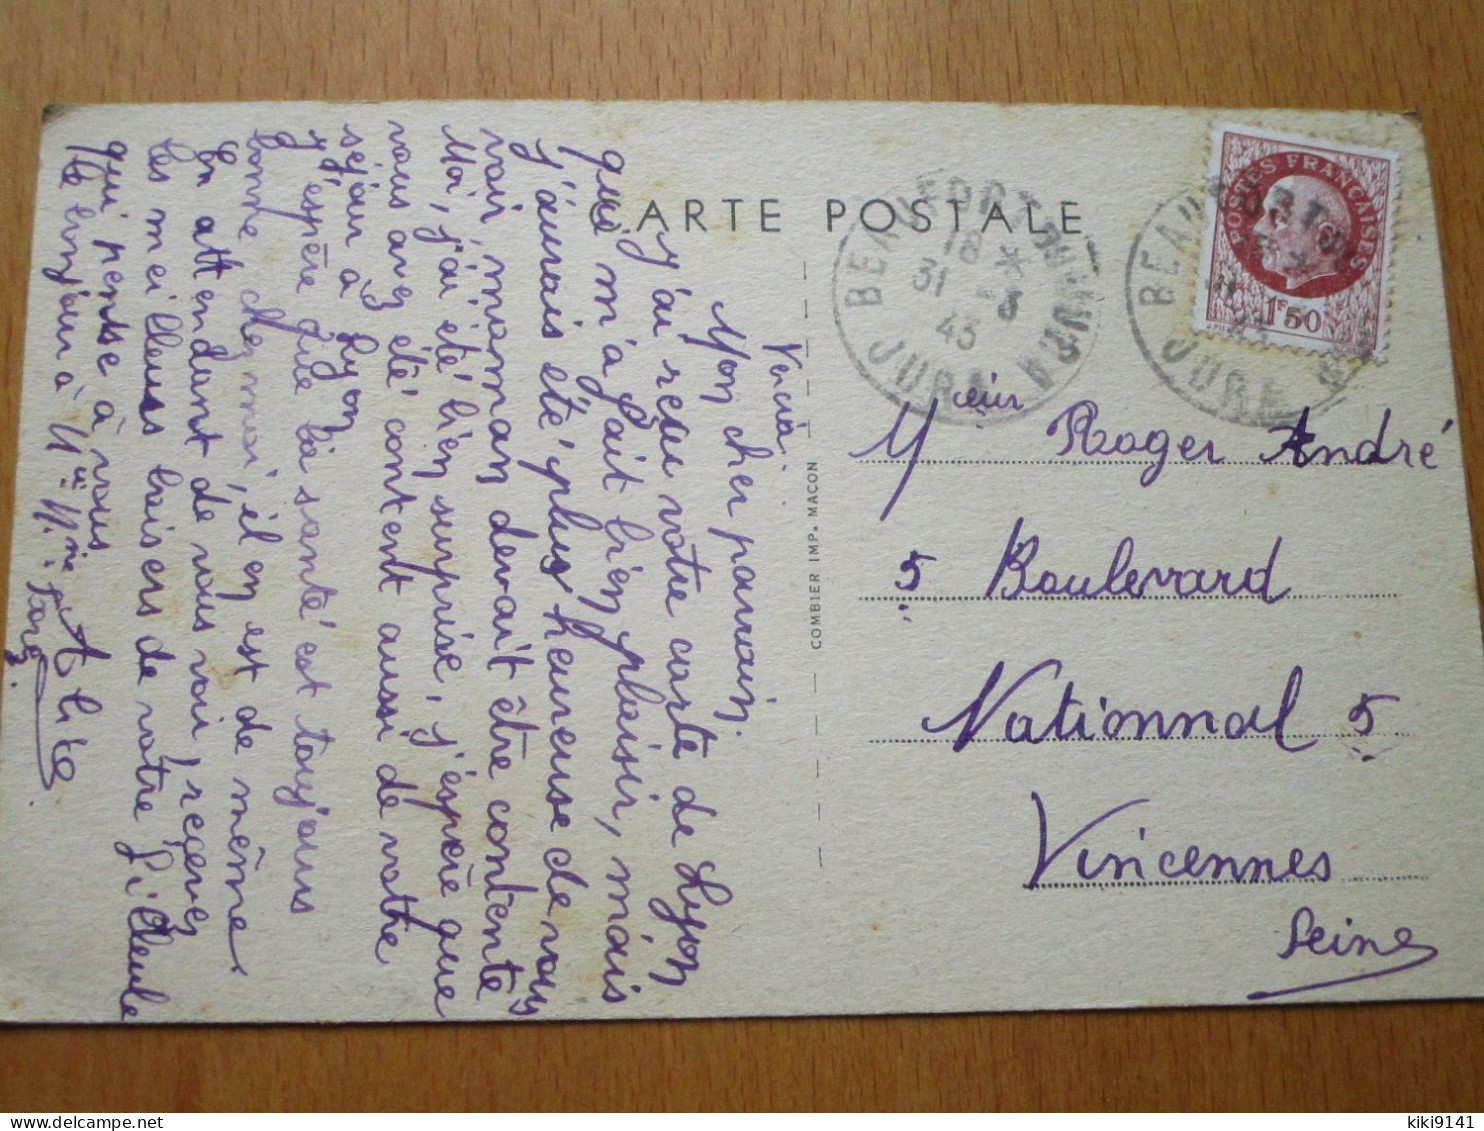 CARTE POSTALE
COMBIER IMP. MACON
POSTES FRANÇAISES
1F50
BEAUFORT
18 *
31 -3
43
JURA
BEAUFORT
JURA
Mon cher parrain.
J'ai reçu votre carte de Lyon
qui m'a fait bien plaisir, mais
j'aurais été plus heureuse de vous
voir, maman devait être contente
Moi, j'ai été bien surprise, j'espère que
vous avez été content aussi de vothe
séjour à Lyon
J'espère que la santé est toujours
bonne chez moi, il en est de même
En attendant de vous voir, reçevez
les meilleurs baisers de votre filleule
qui pense à vous
Le bonjour à
Mcieur Roger André
5 Boulevard
Nationnal 5
Vincennes
Seine
kiki9141